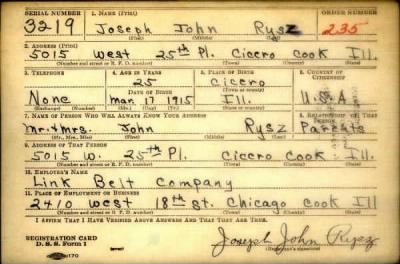 SERIAL NUMBER 1. NAME (Print) ORDER NUMBER
3219 Joseph John Rysz 235
(First) (Middle) (Last)
2. ADDRESS (Print)
5015 West 25th Pl. Cicero Cook Ill.
(Number and street or R. F. D. number) (Town) (County) (State)
3. TELEPHONE 4. AGE IN YEARS 5. PLACE OF BIRTH 6. COUNTRY OF CITIZENSHIP
25 Cicero
DATE OF BIRTH (Town or county)
None Mar. 17 1915 Ill. U.S.A.
(Exchange) (Number) (Mo.) (Day) (Yr.) (State or country)
7. NAME OF PERSON WHO WILL ALWAYS KNOW YOUR ADDRESS 8. RELATIONSHIP OF THAT PERSON
Mr. + Mrs. John Rysz Parents
(Mr., Mrs., Miss) (First) (Middle) (Last)
9. ADDRESS OF THAT PERSON
5015 W. 25th Pl. Cicero Cook Ill.
(Number and street or R. F. D. number) (Town) (County) (State)
10. EMPLOYER'S NAME
Link Belt Company
11. PLACE OF EMPLOYMENT OR BUSINESS
2410 West 18th St. Chicago Cook Ill
(Number and street or R. F. D. number) (Town) (County) (State)
I AFFIRM THAT I HAVE VERIFIED ABOVE ANSWERS AND THAT THEY ARE TRUE.
REGISTRATION CARD
D. S. S. Form 1 Joseph John Rysz
(Registrant's signature)